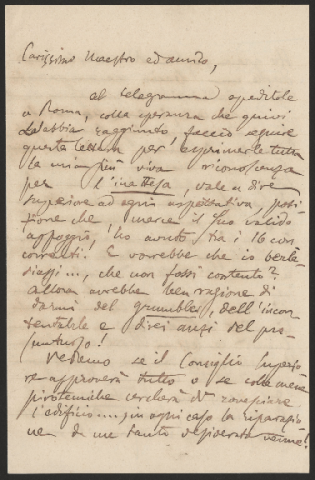 Carissimo Maestro ed amico,
Al telegramma speditole
a Roma, colla speranza che quivi
La abbia raggiunto, faccio seguire
questa lettera per esprimerle tutta
la mia più viva riconoscenza
per l'inattesa, vale a dire
superiore ad ogni aspettativa, posi
zione che mercè il Suo valido
appoggio, ho avuto tra i 16 con
correnti. E vorrebbe che io
che non fossi contento?
Allora avrebbe ben ragione di
darmi del grumbler, dell'incon
tentabile e direi anzi del pre
suntuoso!
Vedremo se il Consiglio Superio
re approverà tutto o se come
pirotecniche cercherà di rovesciare
l'edificio...; in ogni caso la riparazio
ne di un tanto desiderata venne!